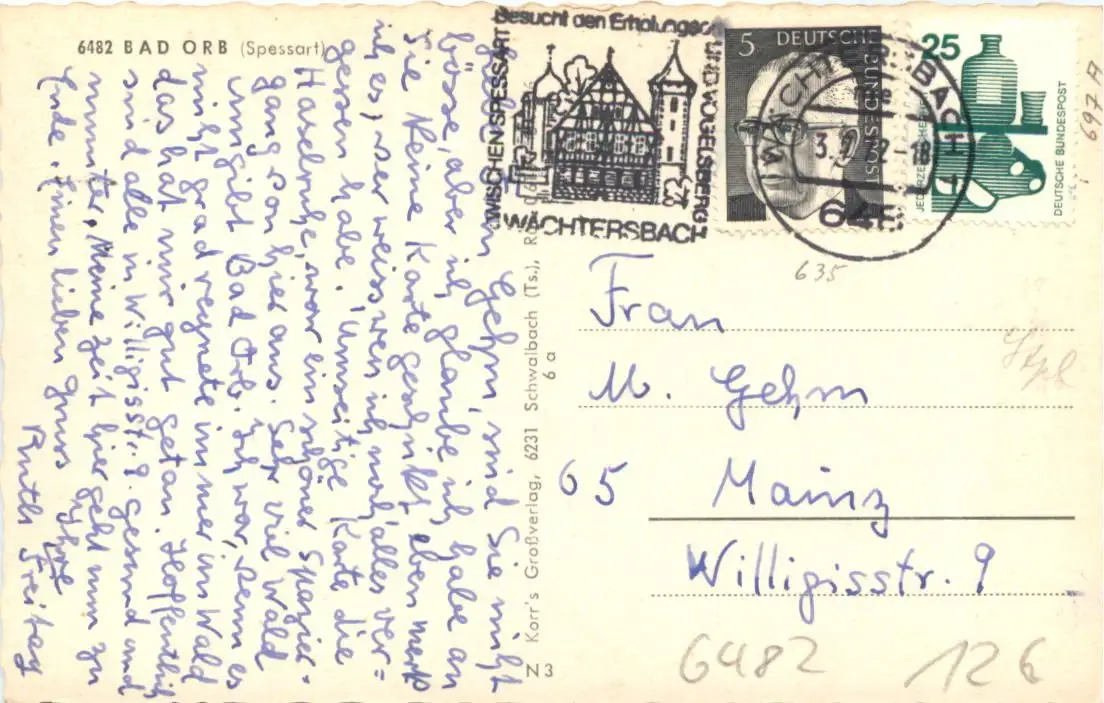 6482 BAD ORB (Spessart)
Liebe Frau Gehm, sind Sie nicht
böse, aber ich glaube ich habe an
Sie keine Karte geschikt, eben merkt
ich es, wer weiss wen ich noch alles ver=
gessen habe. Umseitige Karte die
Haselruhe, war ein schöner Spazier=
gang von hier aus. Sehr viel Wald
umgibt Bad Orb. Ich war, wenn es
nicht grad regnete immer im Wald
das hat mir gut getan. Hoffentlich
sind alle in Willigisstr. 9. gesund und
munter. Meine Zeit hier geht nun zu
Ende. Einen lieben Gruss Ihre
Ruth Freitag
Z 3 Korr's Großverlag, 6231 Schwalbach (Ts.),
6 a
Besucht den Erholungsort
ZWISCHEN SPESSART
UND VOGELSBERG
WÄCHTERSBACH
5 DEUTSCHE BUNDESPOST
25
JEDERZEIT SICHERHEIT
DEUTSCHE BUNDESPOST
WÄCHTERSBACH 1
645
697 A
635
Frau
M. Gehm
65 Mainz
Willigisstr. 9
6482 126